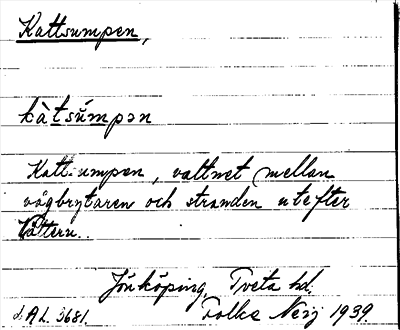 Kattsumpen,
kàtsúmpən
Kattsumpen, vattnet mellan
vågbrytaren och stranden utefter
Vättern.
Jönköping, Tveta hd.
ULAL 3681. Folke Neij 1939.